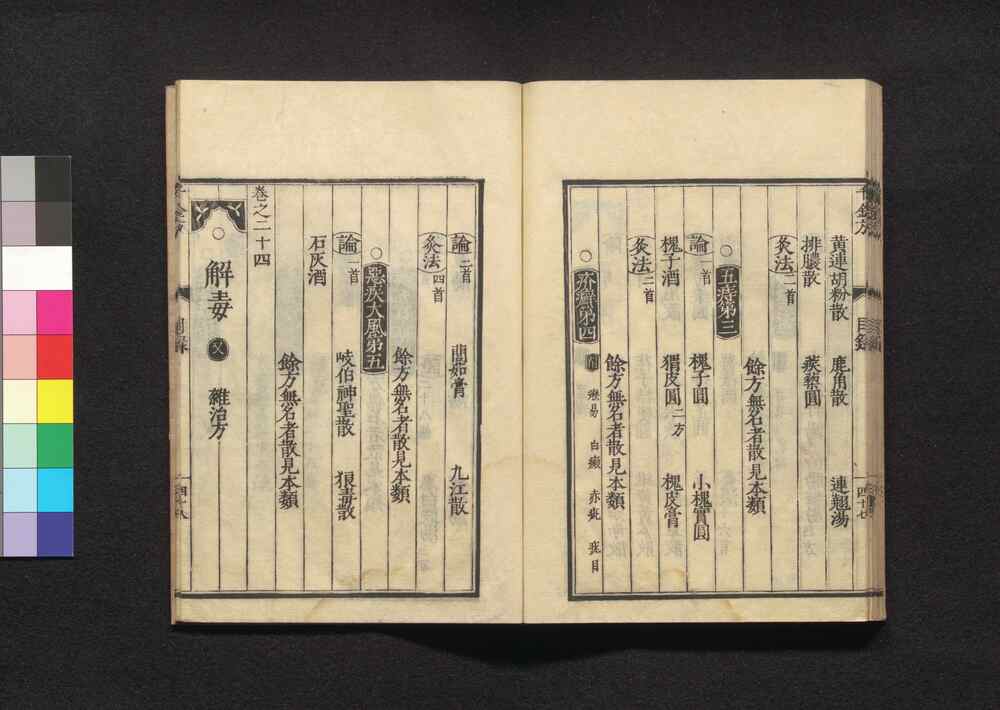 黄連胡粉散 鹿角散 連翹湯
排膿散 蒺藜圓
灸法二首
餘方無名者散見本類
五痔第三
論一首 槐子圓 小槐實圓
槐子酒 猬皮圓二方 槐皮膏
灸法二首
餘方無名者散見本類
疥癬第四
白癜 赤疵 疣目
目錄
四十七
論二首 䕡茹膏 九江散
灸法四首
餘方無名者散見本類
惡疾大風第五
論一首 岐伯神聖散 狼毒散
石灰酒
餘方無名者散見本類
卷之二十四
解毒 雜治方